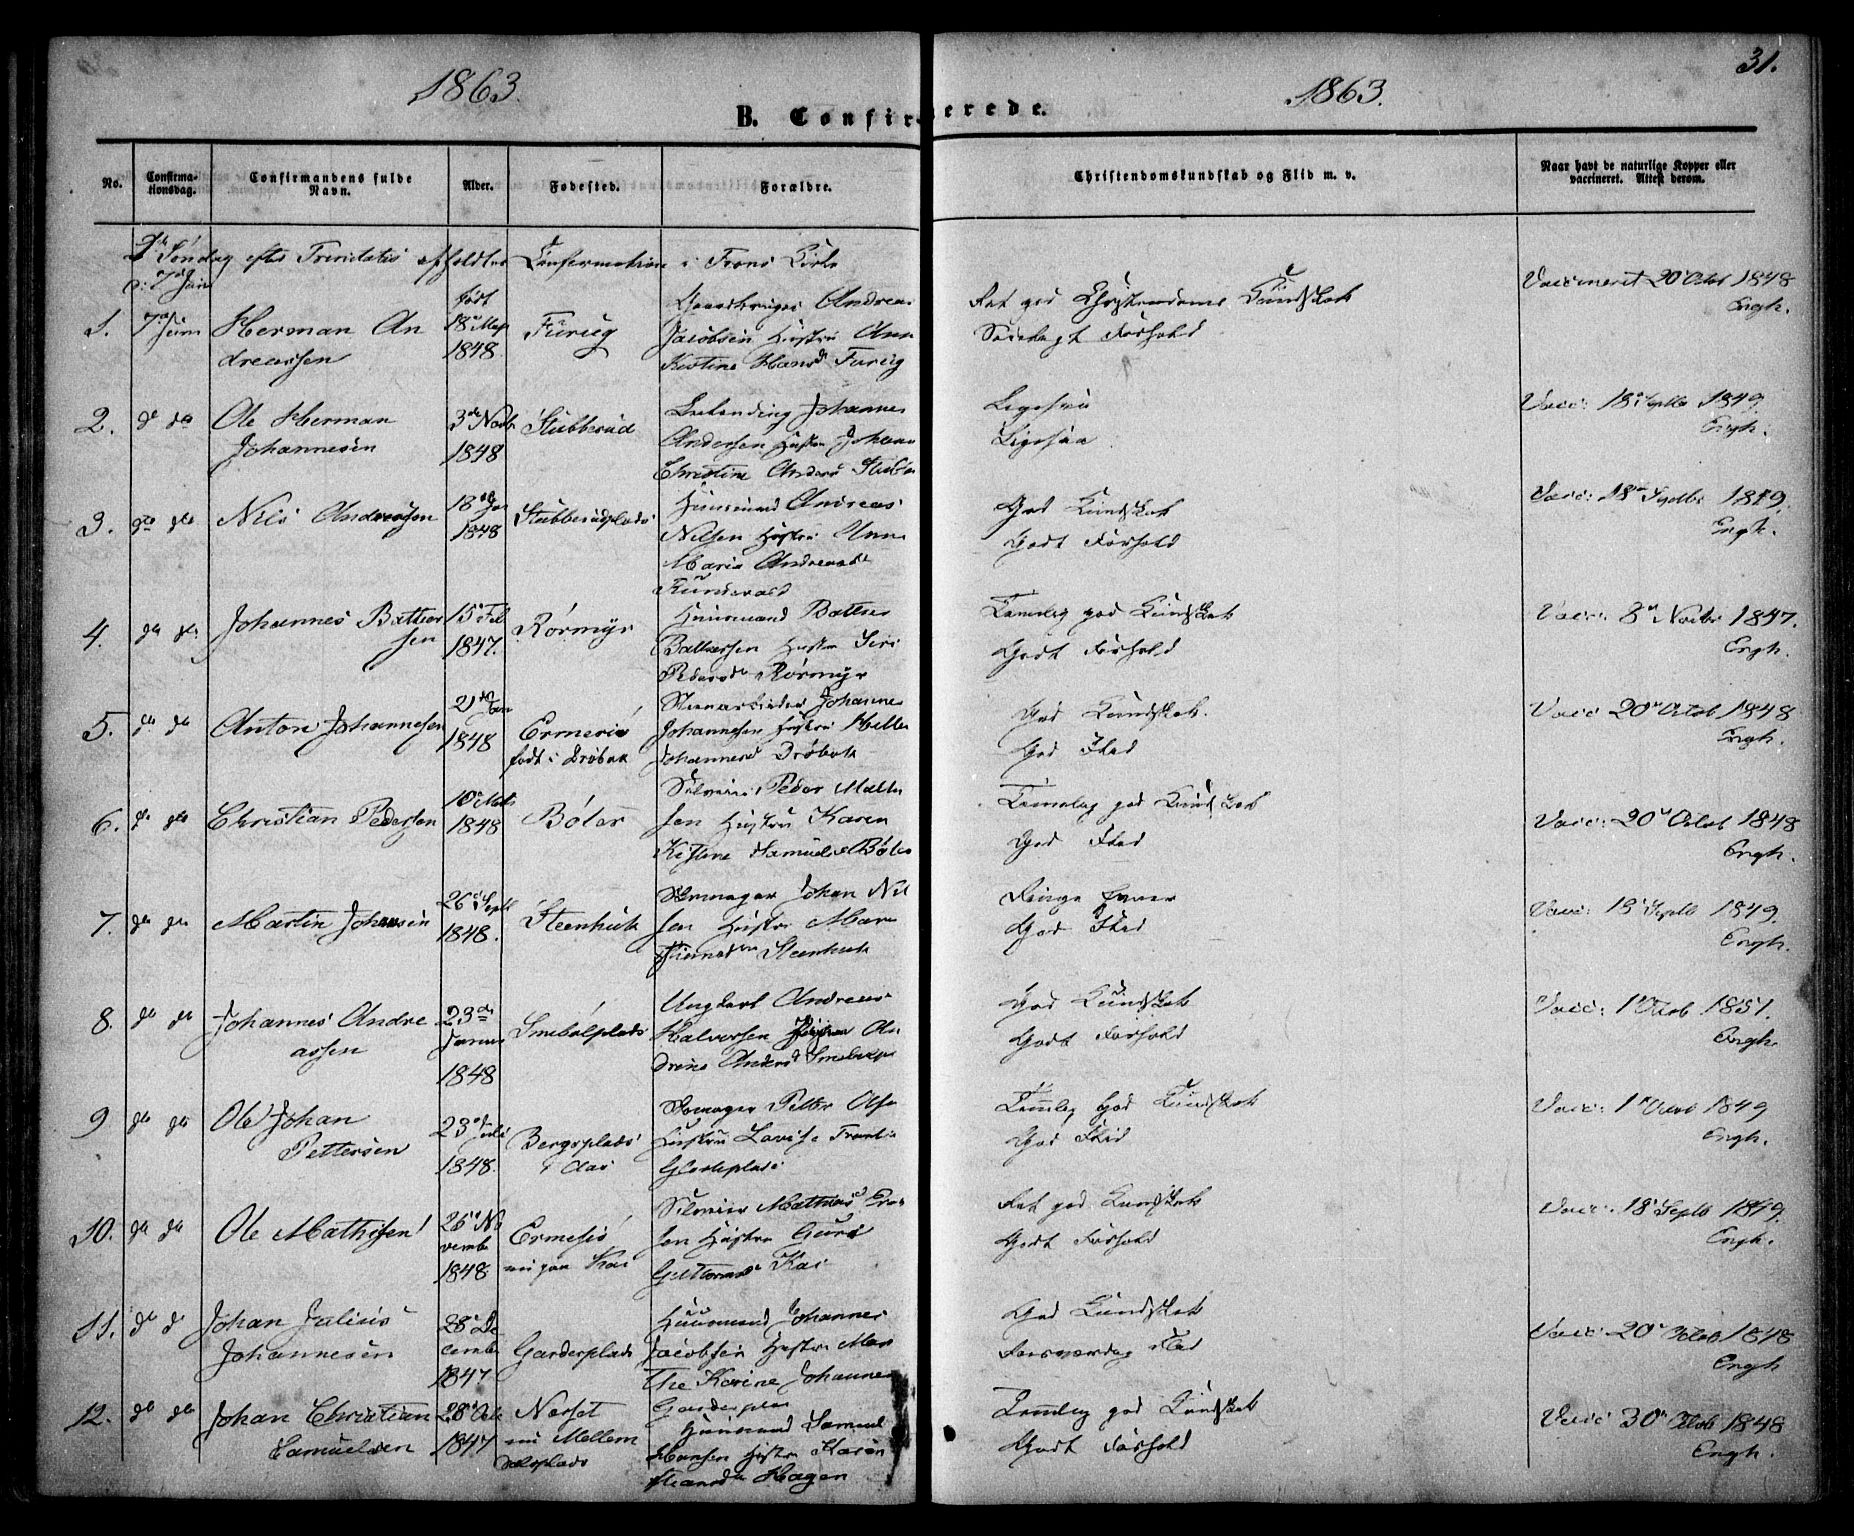 1863
1863.
31.
B. Confirmerede.
No.
Confirma-
tionsdag.
Confirmandens fulde
Navn.
Alder.
Fødested.
Forældre.
Christendomskundskab og Flid m. v.
Naar havt de naturlige Kopper eller
vaccineret. Attest derom.
Søndag efter Trinitatis afholdtes Confirmation i Frons Kirke
1.
Herman An
dreassen
født
18 May
1848.
Furug
Gaardbruger Andreas
Jacobsen Hustru Anne
Kistine Hansd Furug
Ret god Christendoms Kundskab
Forhold
Vaccineret 20 Octob 1848
Engh.
2. do do
Ole Herman
Johannesen
3de Novb
1848
Stubberud
Johannes
Andersen Hustru Johanne
Christine Anders
Ligesaa
Ligesaa
Vacc: 18 Septb 1849.
Engh.
3. do do
Nils Andreassen
18
1848
Stubberudplads
Huusmand Andreas
Nilsen Hustru Anne
Maria Andreasd
God Kundskab
Godt Forhold
Vacc: 18 Septbr 1849.
Engh.
4. do do
Johannes Baltser
sen
15 Feb
1847.
Rørmyr
Huusmand Baltser
Baltsersen Hustru Siri
Pedersd Rørmyr
Temmelig god Kundskab
Godt Forhold
Vacc: 8 Novbr 1847.
Engh.
5. do do
Anton Johannesen
21
1848
født i Drøbak
Johannes
Johannesen Hustru Helle
Johannesd Drøbak
God Kundskab.
God Flid
Vacc 20 Octob 1848
Engh.
6. do do
Christian Pedersen
10
1848
Bøler
Peder
sen Hustru Karen
Kistine Samuelsd Bøler
Temmelig god Kundskab
God Flid
Vacc: 20 Octob 1848
Engh.
7. do do
Martin Johansen
26 Septb
1848.
Steenhuk
Skomager Johan Nil
sen Hustru Mare
Steenhuk
Ringe Evner
God Flid
Vacc: 18 Septb 1849.
Engh.
8. do do
Johannes Andre
assen
23de
Januar
1848
Smebølplads
Ungkarl Andreas
Halvorsen An
drine Andersd
God Kundskab
Godt Forhold
Vacc: 1 Octob 1851.
Engh.
9 do do
Ole Johan
Pettersen
23 Juli
1848.
Bergsplads
i Aas
Skomager Petter
Hustru Lovise
Temmelig God Kundskab
God Flid
Vacc: 1 Octob 1849
Engh.
10. do do
Ole Mathisen
26 No
vembr
1848
Ermesjø
nu paa Kas
Mathias
sen Hustru Guro
Guttormsd Kas
Ret god Kundskab
Godt Forhold
Vacc: 18 Septb 1849.
Engh.
11. do do
Johan Julius
Johannesen
28 De
cembr
1847
Garderplads
Huusmand Johannes
Jacobsen Hustru Mar
the Karine Johannes
God Kundskab
Flid
Vacc: 20 Octob 1848
Engh
12. do do
Johan Christian
Samuelsen
28 Octb
1847
Næset
nu Mellem
Garderplads
Huusmand Samuel
Hansen Hustru Karen
Hansd Hagen
Temmelig god Kundskab
Godt Forhold
Vacc: 30 Octob 1848
Engh.